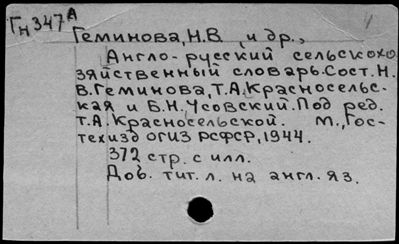 Гн347А
Геминова, Н.В. и др.,
Англо-русский сельскохо
зяйственный словарь. Сост. Н.
В. Геминова, Т.А. Красносельс-
кая и Б.Н. Усовский. Под ред.
Т.А. Красносельской. М., Гос-
техизд ОГИЗ РСФСР, 1944.
372 стр. с илл.
Доб. тит. л. на англ. яз.